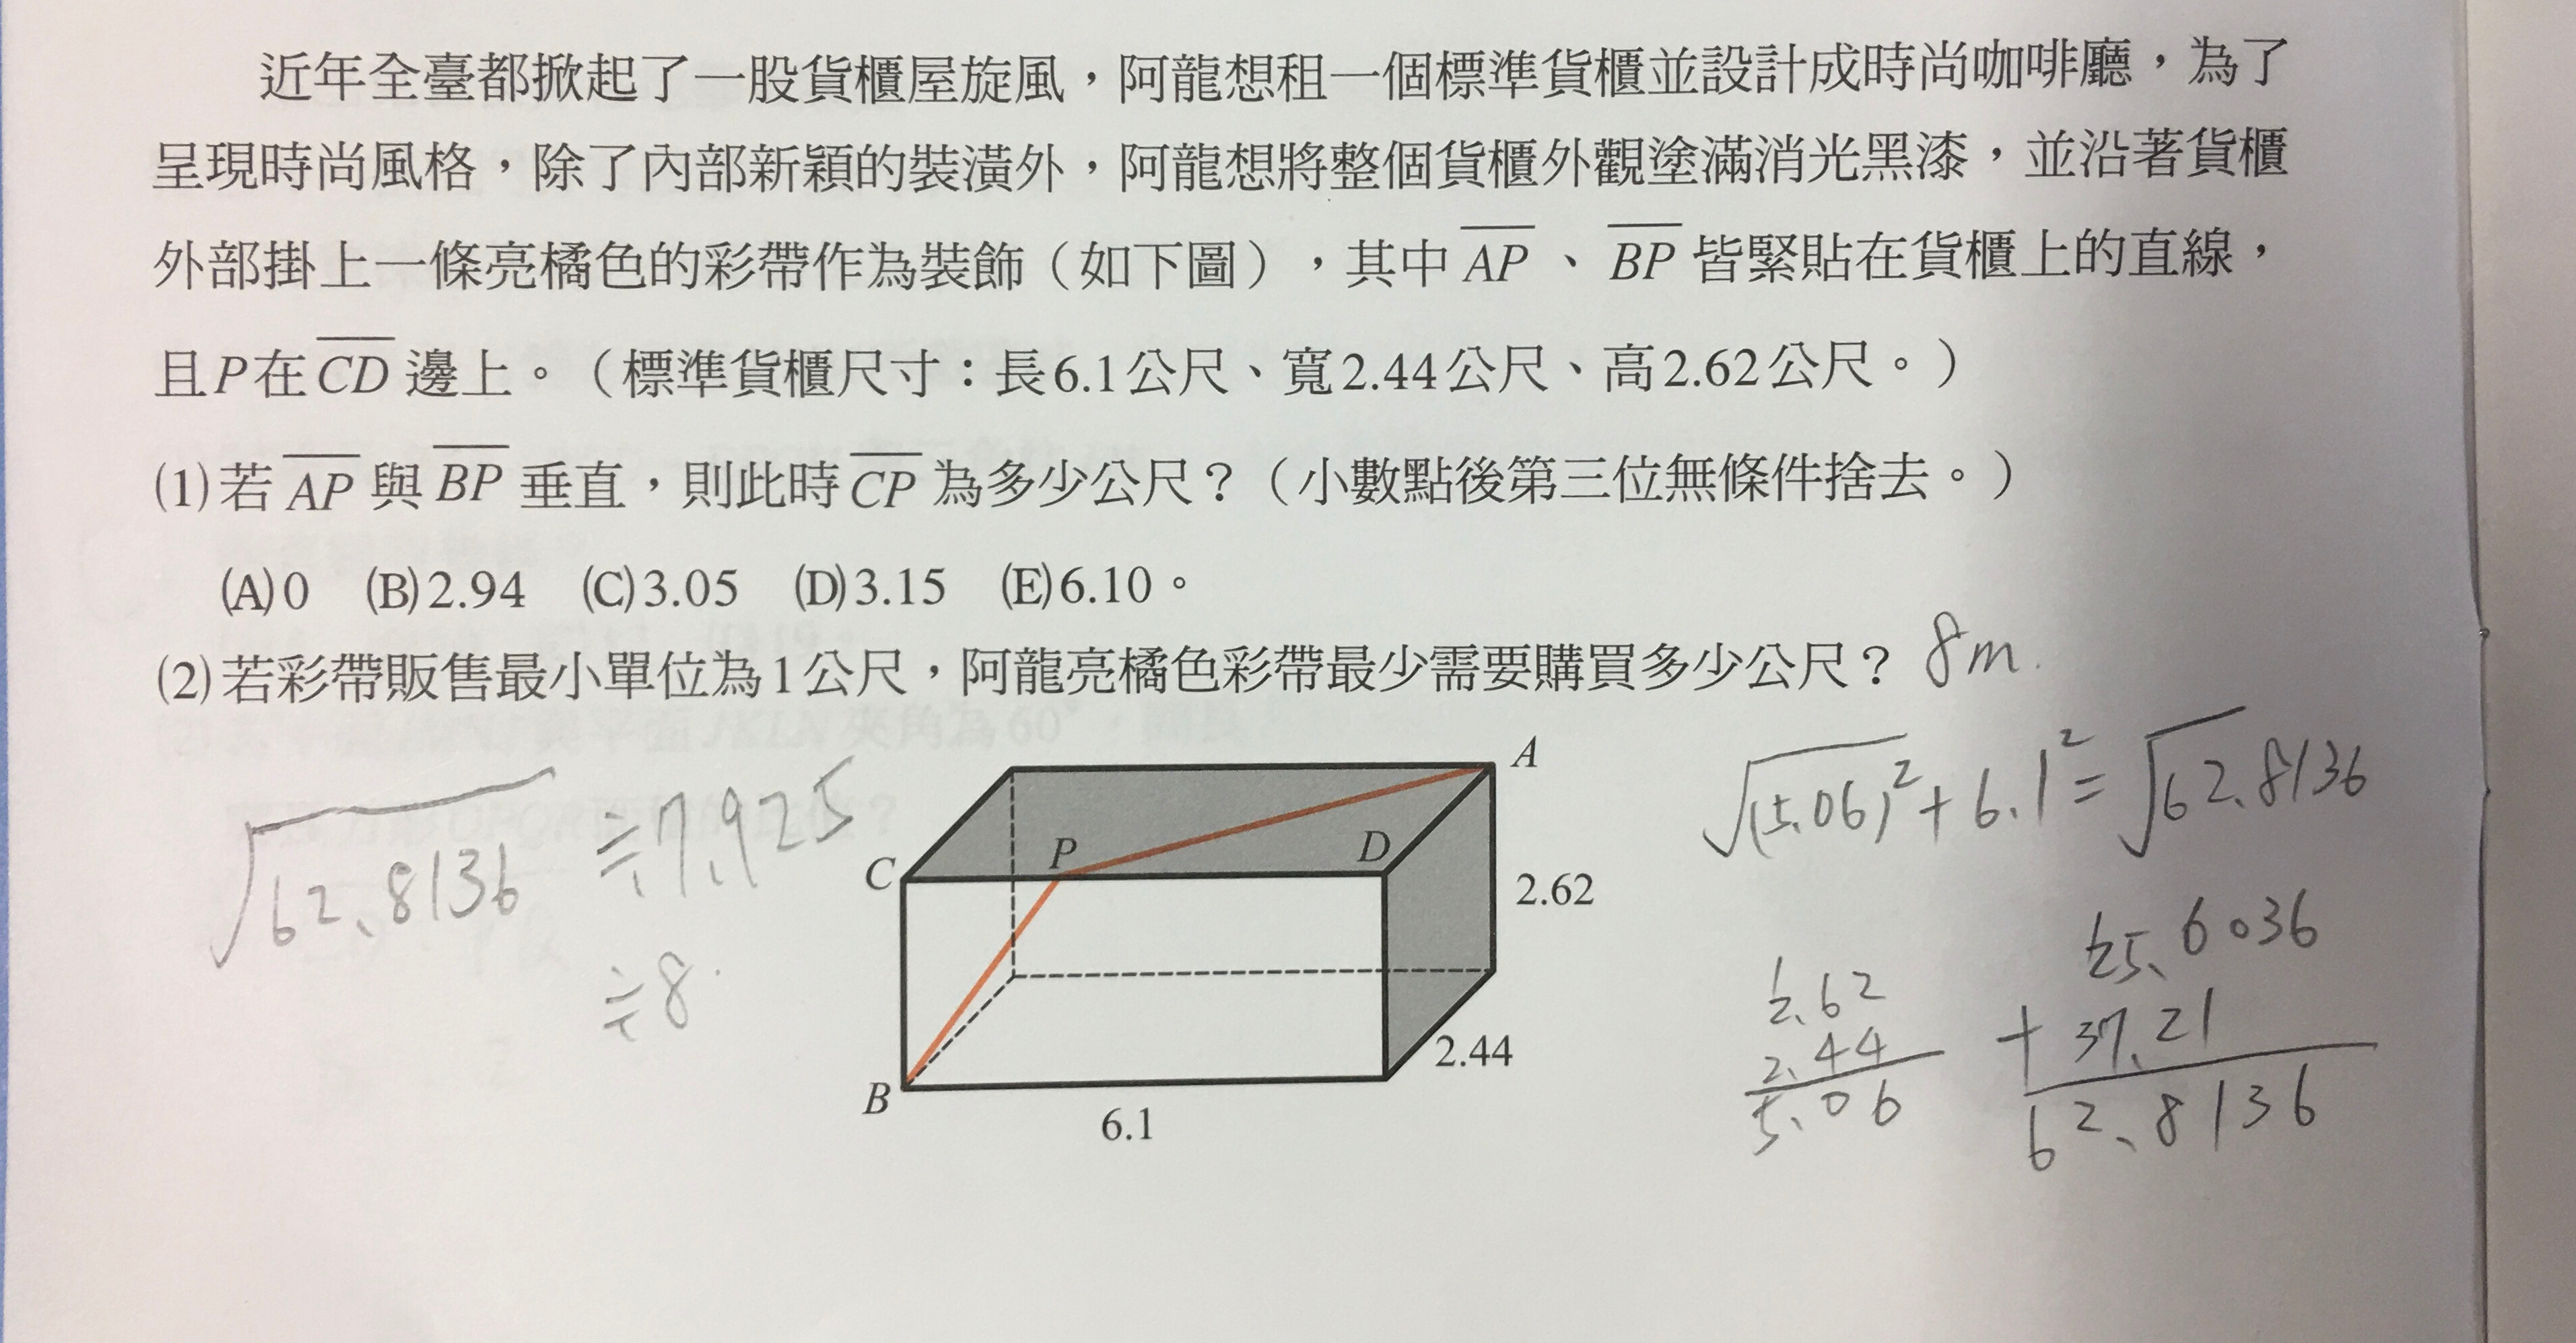 近年全臺都掀起了一股貨櫃屋旋風，阿龍想租一個標準貨櫃並設計成時尚咖啡廳，為了
呈現時尚風格，除了內部新穎的裝潢外，阿龍想將整個貨櫃外觀塗滿消光黑漆，並沿著貨櫃
外部掛上一條亮橘色的彩帶作為裝飾（如下圖），其中 AP 、 BP 皆緊貼在貨櫃上的直線，
且P在 CD 邊上。（標準貨櫃尺寸：長6.1公尺、寬2.44公尺、高2.62公尺。）
(1)若 AP 與 BP 垂直，則此時 CP 為多少公尺？（小數點後第三位無條件捨去。）
(A)0 (B)2.94 (C)3.05 (D)3.15 (E)6.10。
(2)若彩帶販售最小單位為1公尺，阿龍亮橘色彩帶最少需要購買多少公尺？ 8m.
√62.8136 ≒7.925
≒8.
A
C
P
D
2.62
2.44
B
6.1
√(5.06)²+6.1²=√62.8136
2.62
2.44
5.06
25.6036
+37.21
62.8136